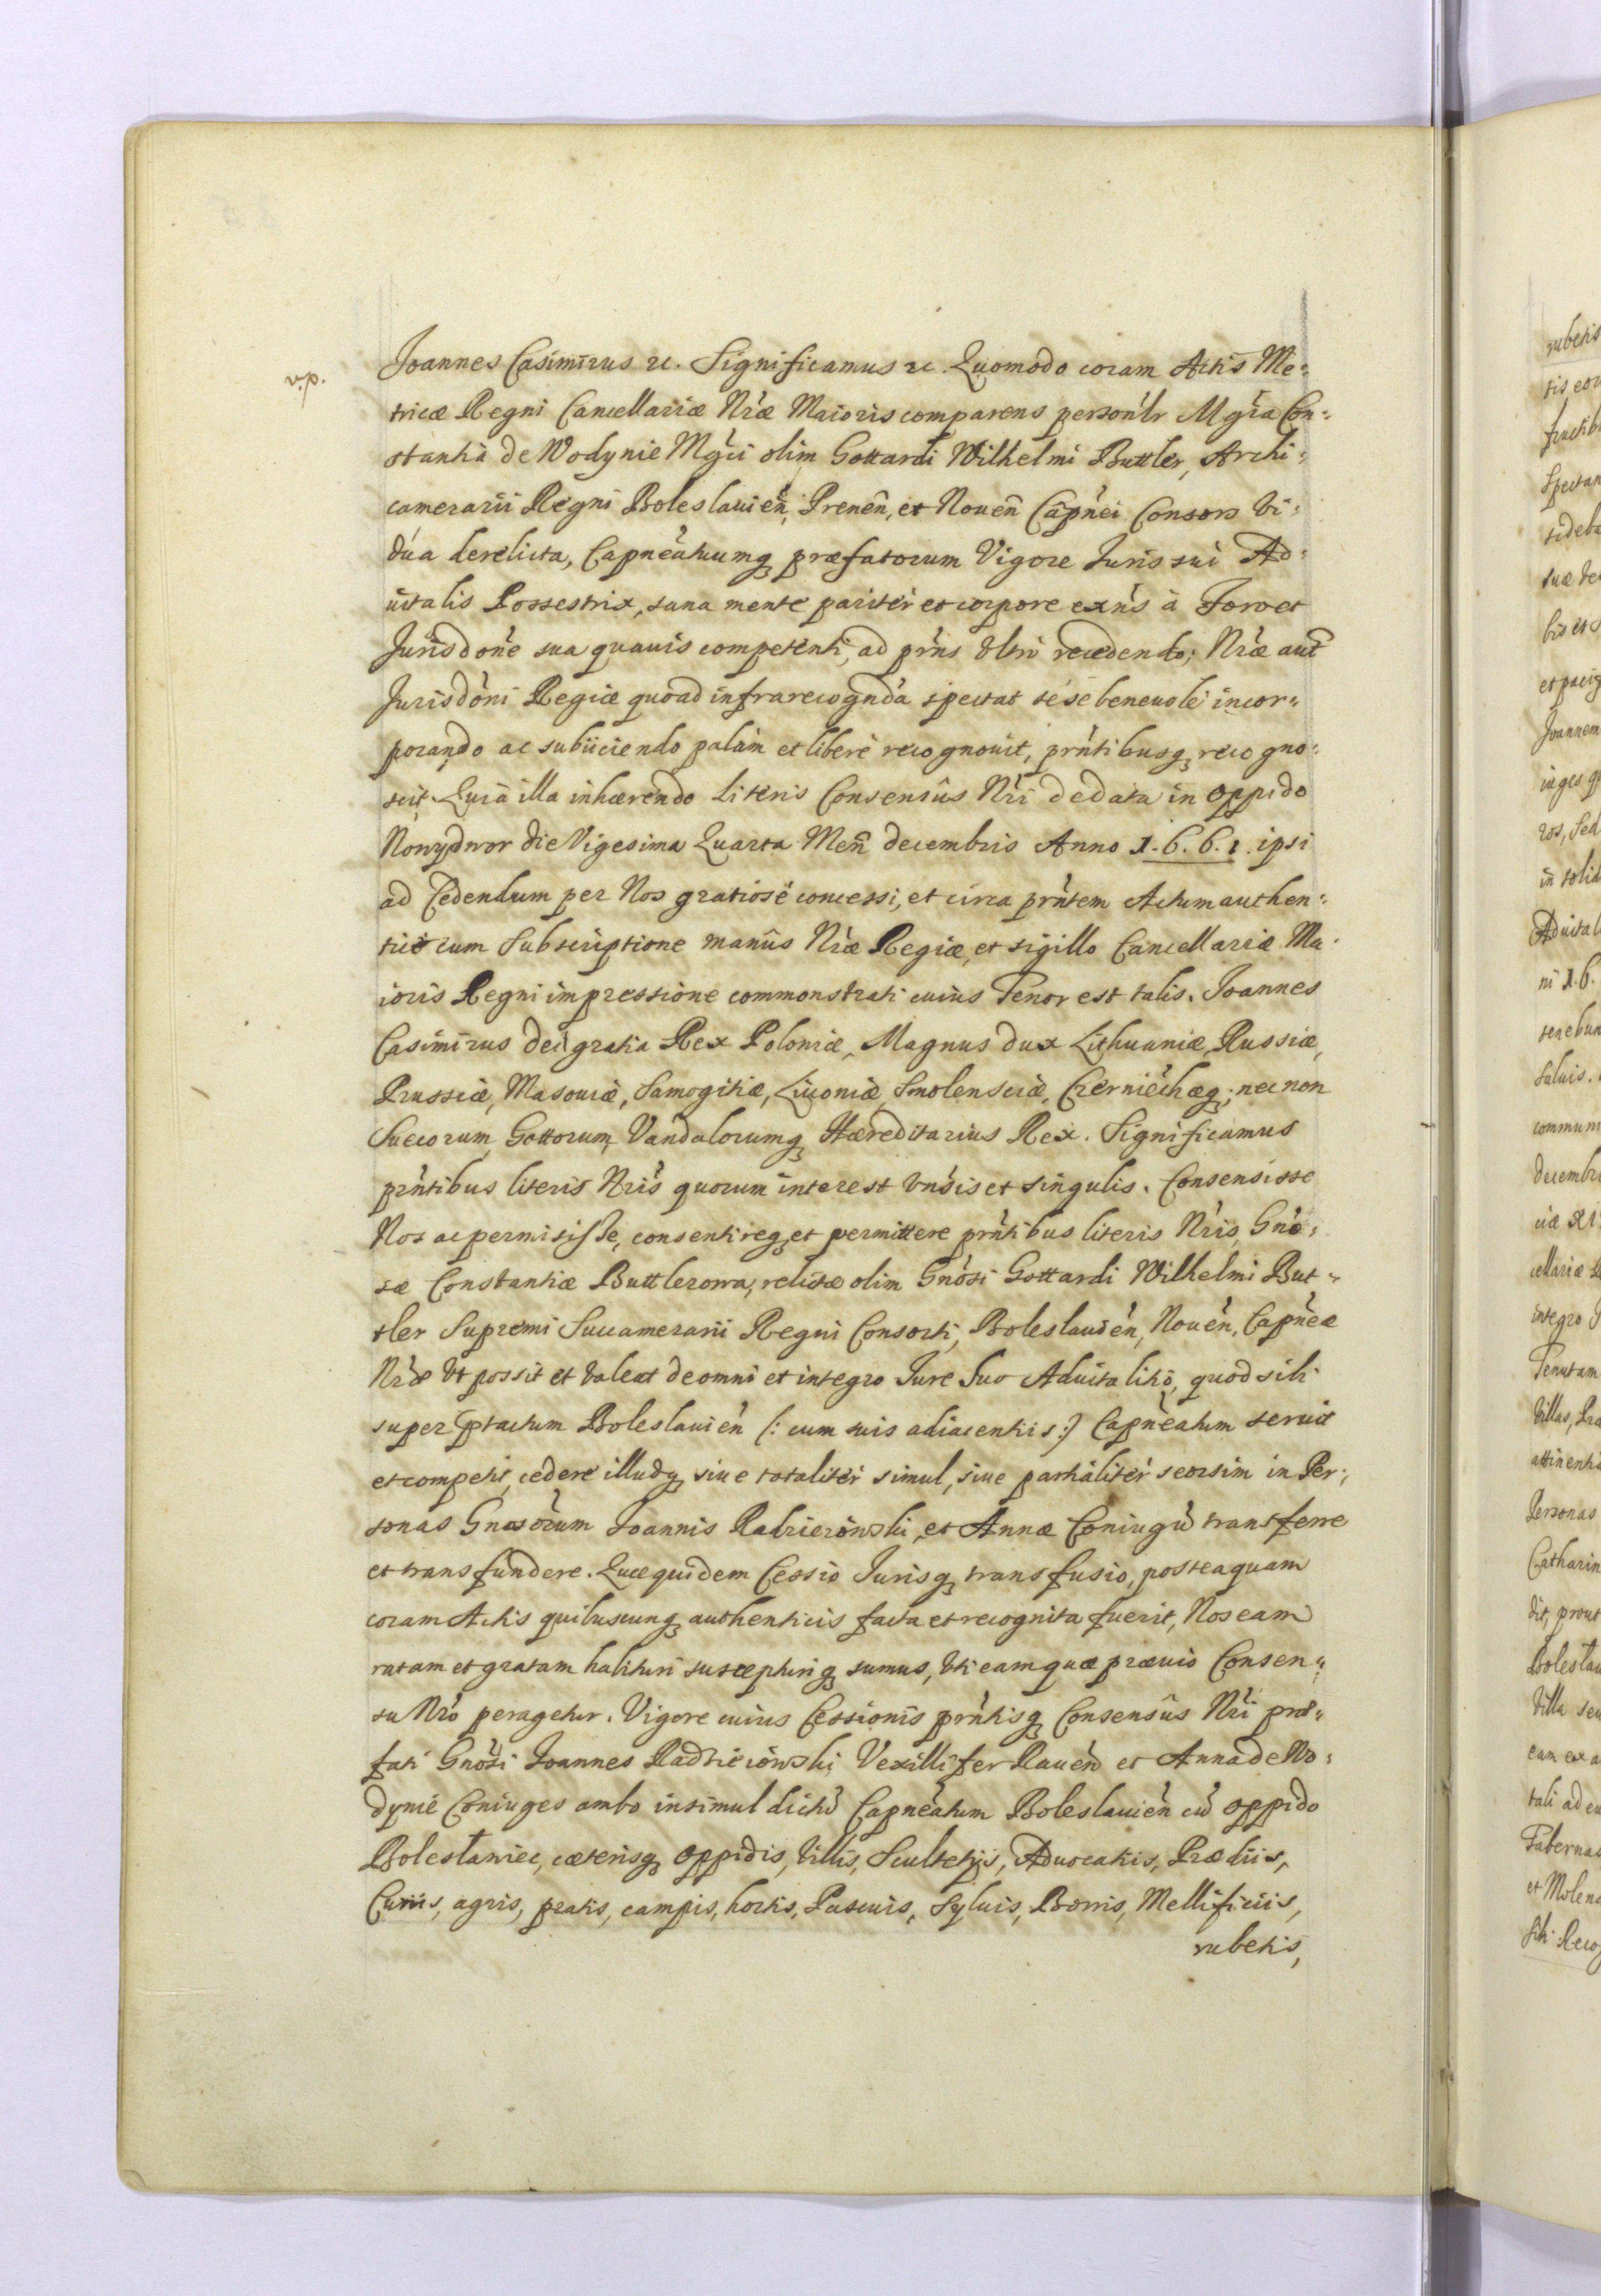 v.p.
Joannes Casimirus etc. Significamus etc. Quomodo coram Actis Me:
tricæ Regni Cancellariæ Nræ Maioris comparens personlr Mgca Con:
stantia de Wodynie Mgci olim Gottardi Wilhelmi Buttler, Archi:
camerarii Regni Boleslauien, Prenen, et Nouen Capnei Consors Vi:
dua derelicta, Capneatuumq præfatorum Vigore Juris sui Ad:
uitalis Possestrix, sana mente pariter et corpore exns à Foro et
Jurisdone sua quauis competenti, ad prns Vltro recedendo; Nræ aut
Jurisdoni Regiæ quoad infrarecognda spectat sese beneuole incor:
porando ac subiiciendo palam et liberè recognouit, prntibusq recogno:
scit. Quia illa inhærendo Literis Consensûs Nri de data in Oppido
Nowydwor die Vigesima Quarta Men decembris Anno 1.6.6.1. ipsi
ad Cedendum per Nos gratiosè concessi, et circa prntem Actum authen:
ticè cum Subscriptione manûs Nræ Regiæ, et sigillo Cancellariæ Ma:
ioris Regni impressione commonstrati cuius Tenor est talis. Joannes
Casimirus dei gratia Rex Poloniæ, Magnus dux Lithuaniæ, Russiæ,
Prussiæ, Masouiæ, Samogitiæ, Liuoniæ, Smolensciæ, Czerniechæq; nec non
Suecorum, Gottorum, Vandalorumq Hæreditarius Rex. Significamus
prntibus literis Nris quorum interest Vnsis et singulis. Consensisse
Nos ac permisisse, consentireq et permittere prntibus literis Nris Gno:
sæ Constantiæ Buttlerowa, relictæ olim Gnosi Gottardi Wilhelmi But:
tler Supremi Succamerarii Regni Consorti, Boleslauien, Nouen, Capneæ
Nræ Vt possit et Valeat de omni et integro Jure Suo Aduitalitio, quod sibi
super Cptactum Boleslauien (: cum suis adiacentiis :) Capneatum seruit
et competit, cedere illudq siue totaliter simul, siue partialiter seorsim in Per:
sonas Gnosorum Joannis Radzieiowski, et Annæ Coniugu transferre
et transfundere. Quæ quidem Cessio Jurisq transfusio, posteaquam
coram Actis quibuscunq authenticis facta et recognita fuerit, Nos eam
ratam et gratam habituri suscepturiq sumus, Vti eam quæ præuio Consen:
su Nro peragetur. Vigore cuius Cessionis prntisq Consensûs Nri præ:
fati Gnosi Joannes Radzieiowski Vexillifer Rauen et Anna de Wo:
dynie Coniuges ambo insimul dictu Capneatum Boleslauien cu Oppido
Bolesławiec, cæterisq Oppidis, Villis, Scultetiis, Aduocatis, Prædiis,
Curiis, agris, pratis, campis, hortis, Pascuis, Syluis, Borris, Mellificiis,
rubetis,